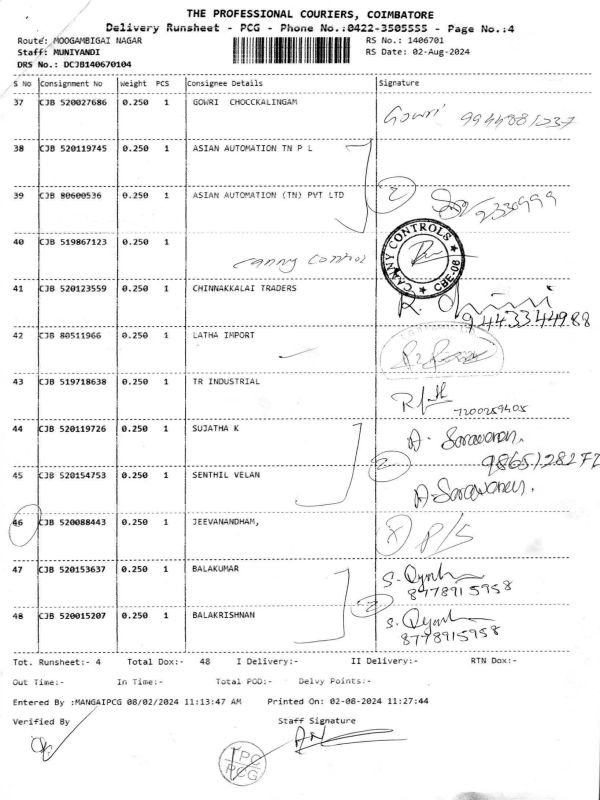 THE PROFESSIONAL COURIERS, COIMBATORE
Delivery Runsheet - PCG - Phone No.:0422-3505555 - Page No.:4
Route: MOOGAMBIGAI NAGAR RS No.: 1406701
Staff: MUNIYANDI RS Date: 02-Aug-2024
DRS No.: DCJB140670104
S No Consignment No Weight PCS Consignee Details Signature
37 CJB 520027686 0.250 1 GOWRI CHOCCKALINGAM Gowri
38 CJB 520119745 0.250 1 ASIAN AUTOMATION TN P L
39 CJB 80600536 0.250 1 ASIAN AUTOMATION (TN) PVT LTD 2
40 CJB 519867123 0.250 1 canny control CANNY CONTROLS CBE-06
41 CJB 520123559 0.250 1 CHINNAKKALAI TRADERS 9443344988
42 CJB 80511966 0.250 1 LATHA IMPORT
43 CJB 519718638 0.250 1 TR INDUSTRIAL 7200259405
44 CJB 520119726 0.250 1 SUJATHA K A. Saravanan.
2
45 CJB 520154753 0.250 1 SENTHIL VELAN A. Saravanan.
46 CJB 520088443 0.250 1 JEEVANANDHAM, P/S
47 CJB 520153637 0.250 1 BALAKUMAR 8778915958
2
48 CJB 520015207 0.250 1 BALAKRISHNAN 8778915958
Tot. Runsheet:- 4 Total Dox:- 48 I Delivery:- II Delivery:- RTN Dox:-
Out Time:- In Time:- Total POD:- Delvy Points:-
Entered By :MANGAIPCG 08/02/2024 11:13:47 AM Printed On: 02-08-2024 11:27:44
Verified By Staff Signature
TPC
PCG